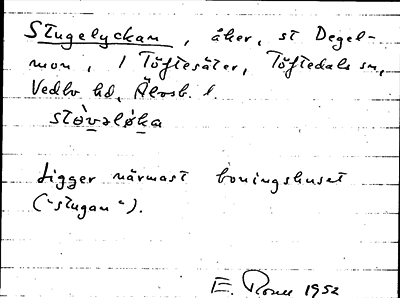 Stugelyckan, åker, st Degel-
mon, 1 Töftesäter, Töftedals sn,
Vedbo hd, Älvsb. l.
Ligger närmast boningshuset
("stugan").
E. 1952